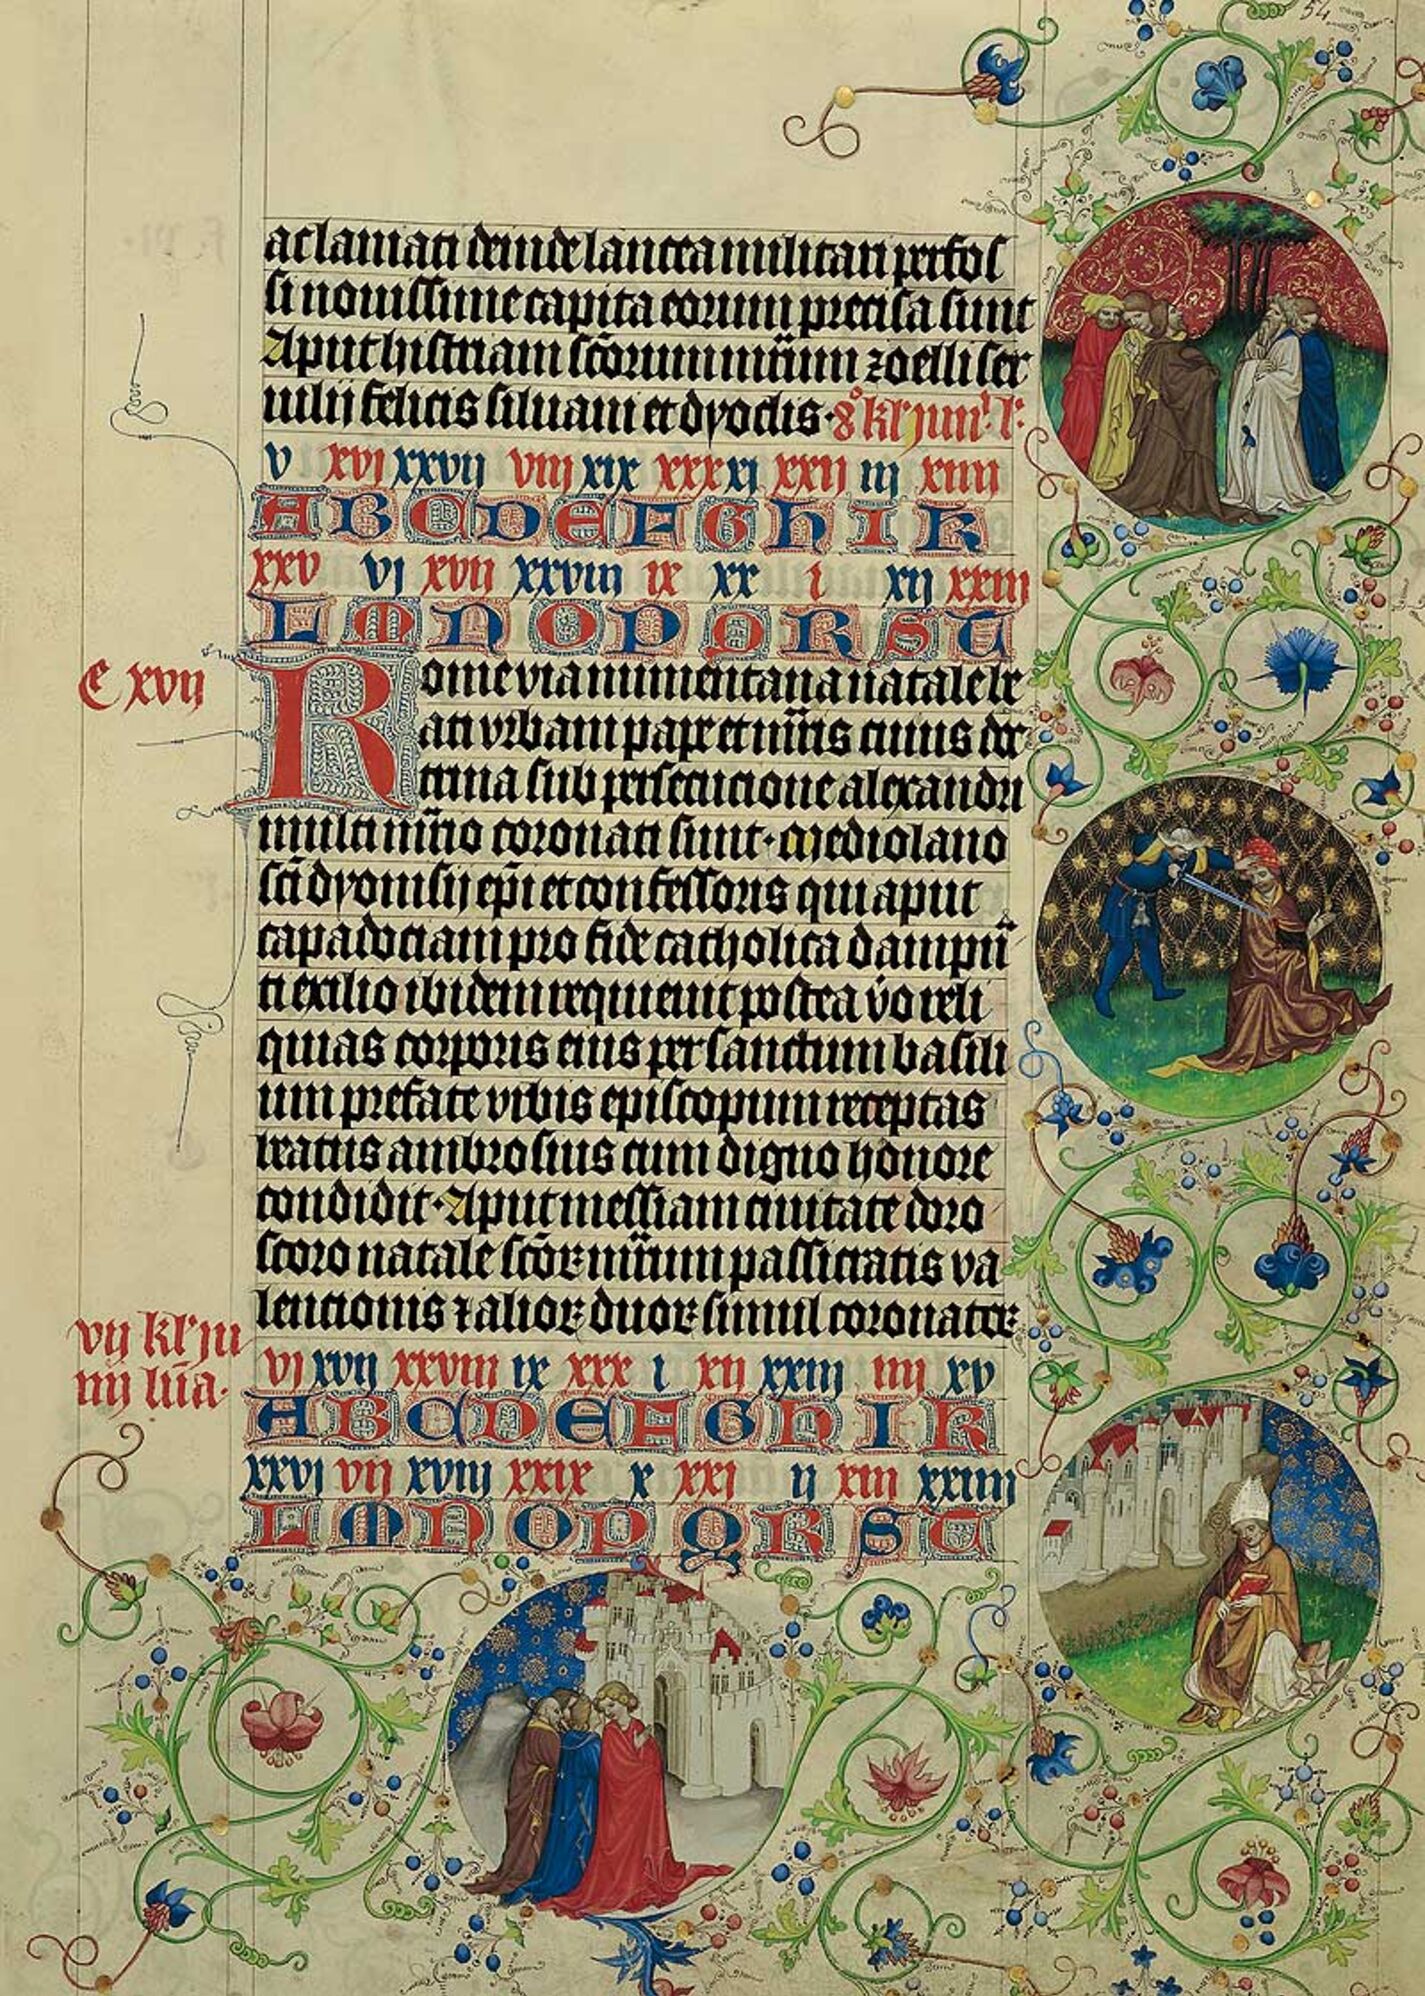 54
aclamati deinde lancea militari perfos
si nouissime capita eorum precisa sunt
Aput histriam scorum mrium zoelli ser
uilij felicis siluani et dyoclis. 8o kl' junij l'
v xvj xxvij viij xix xxx xj xxij iij xiiij
A B C D E F G H I K
xxv vj xvij xxviij ix xx i xij xxiij
L M N O P Q R S T
C xvij
Rome via numentana natale be
ati vrbani pape et mris cuius doc
trina sub persecucione alexandri
multi mrio coronati sunt. Mediolano
sci dyonisij epi et confessoris qui aput
capadociam pro fide catholica dampna
ti exilio ibidem requieuit postea vo reli
quias corporis eius per sanctum basili
um prefate vrbis episcopum receptas
beatus ambrosius cum digno honore
condidit. Aput messiam ciuitate doro
storo natale scor mrium passicratis va
lencionis et alior duor simul coronator
vij kl' ju
nij lua.
vj xvij xxviij ix xxx i xij xxiij iiij xv
A B C D E F G H I K
xxvj vij xviij xxix x xxj ij xiij xxiiij
L M N O P Q R S T